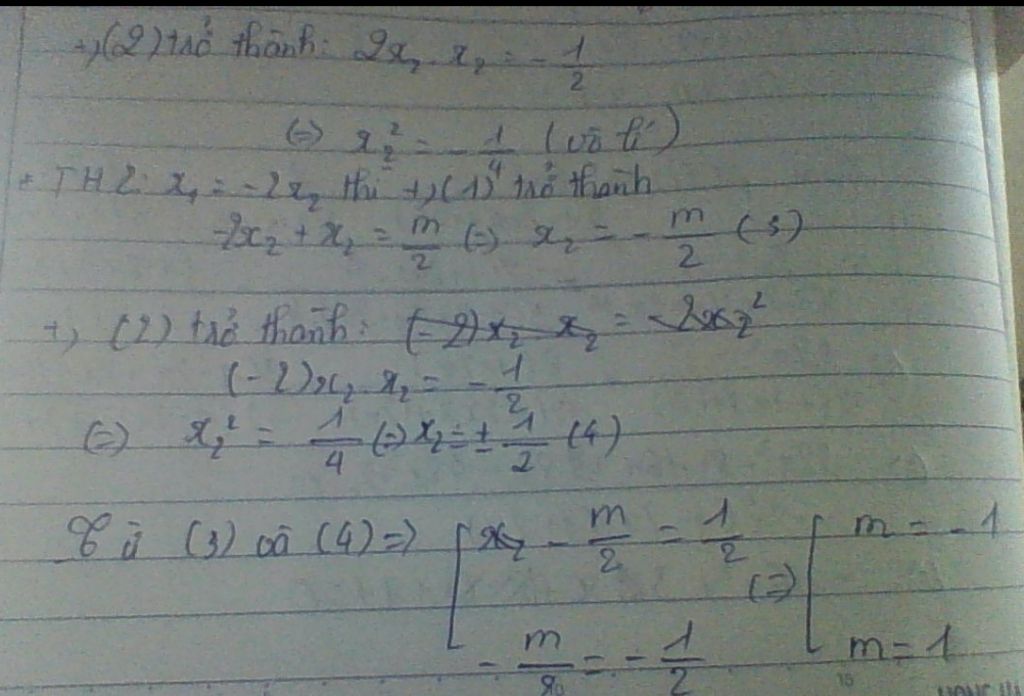 +, (2) trở thành: 2x₂ . x₂ = - 1/2
(=) x₂² = - 1/4 (vô lí)
+ TH2: x₁ = -2x₂ thì +, (1) trở thành
-2x₂ + x₂ = m/2 (=) x₂ = - m/2 (3)
+, (2) trở thành: (-2)x₂ x₂ = -2x₂²
(-2)x₂ x₂ = - 1/2
(=) x₂² = 1/4 (=) x₂ = ± 1/2 (4)
Từ (3) và (4) => [ x₂ - m/2 = 1/2 (=) [ m = -1
- m/2 = - 1/2 m = 1